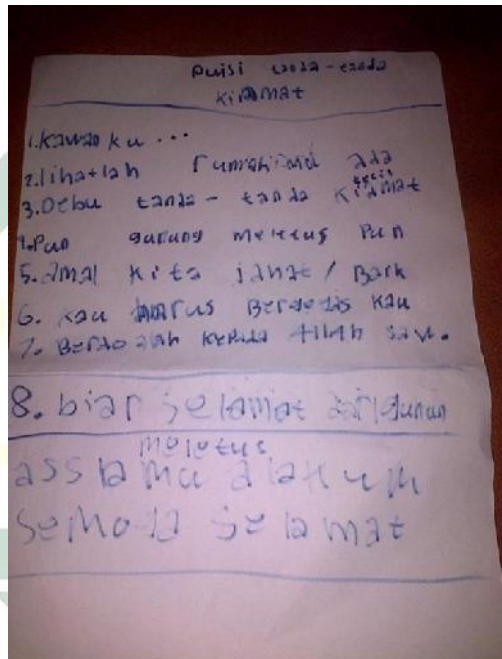 Puisi tanda-tanda
kiamat
1. Kawan ku ...
2. lihatlah rumahimu ada
3. Debu tanda - tanda kiamat
4. Pun gunung meletus pun
5. Amal kita jahat / Baik
6. Kau harus Berdo'a kau
7. Berdo alah kepada Allah SWT.
8. biar selamat dari gunun
meletus
asslamu alaikum
semoga selamat